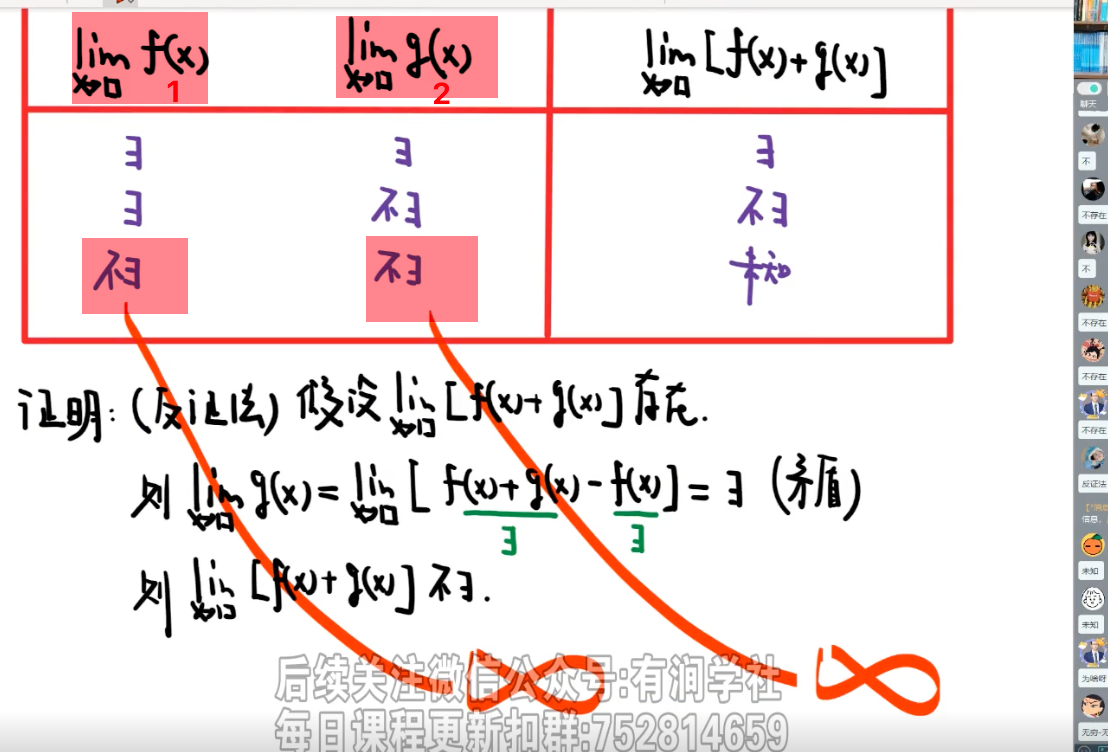 lim x→□ f(x) 1 lim x→□ g(x) 2 lim x→□ [f(x)+g(x)]
∃ ∃ ∃
∃ 不∃ 不∃
不∃ 不∃ 未知
证明:(反证法) 假设 lim x→□ [f(x)+g(x)] 存在.
则 lim x→□ g(x) = lim x→□ [ f(x)+g(x) - f(x)] = ∃ (矛盾)
∃ ∃
则 lim x→□ [f(x)+g(x)] 不∃.
∞ ∞
后续关注微信公众号:有润学社
每日课程更新扣群:752814659
聊天
不
不存在
不
不存在
不存在
不存在
反证法
信息,
未知
未知
为啥呀